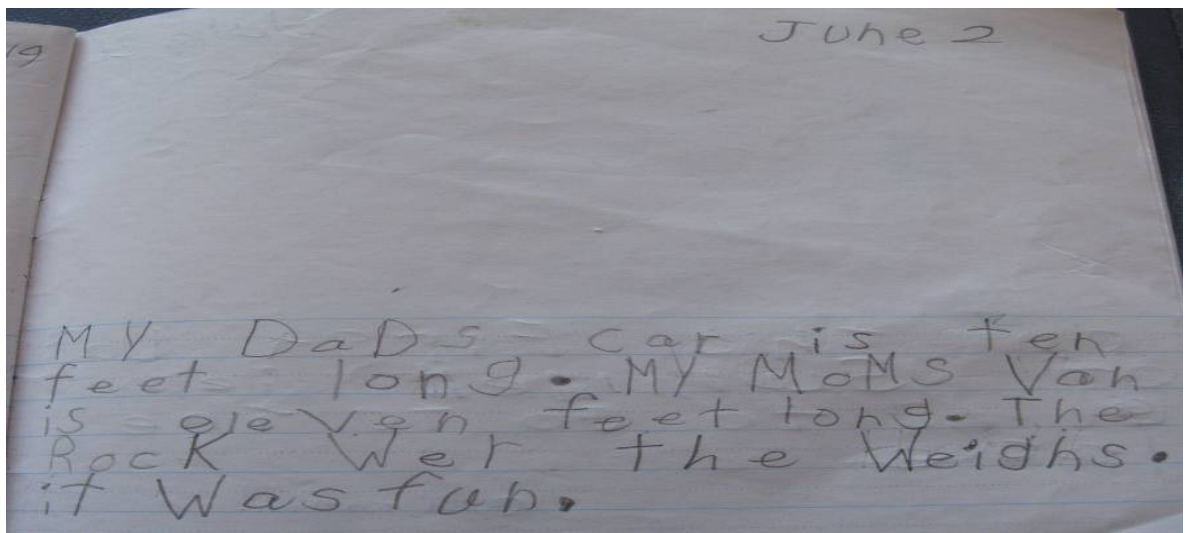 19
June 2
MY DaDs car is ten
feet long. MY MoMs Van
is eleven feet long. The
Rock Wer the Weighs.
it Was fun.